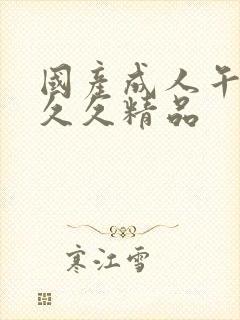 國産成人午
久久精品
寒江雪